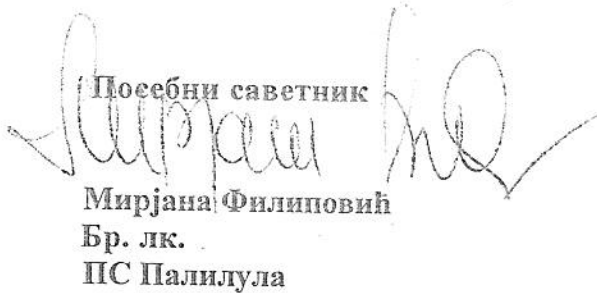 Посебни саветник
Мирјана Филиповић
Бр. лк.
ПС Палилула